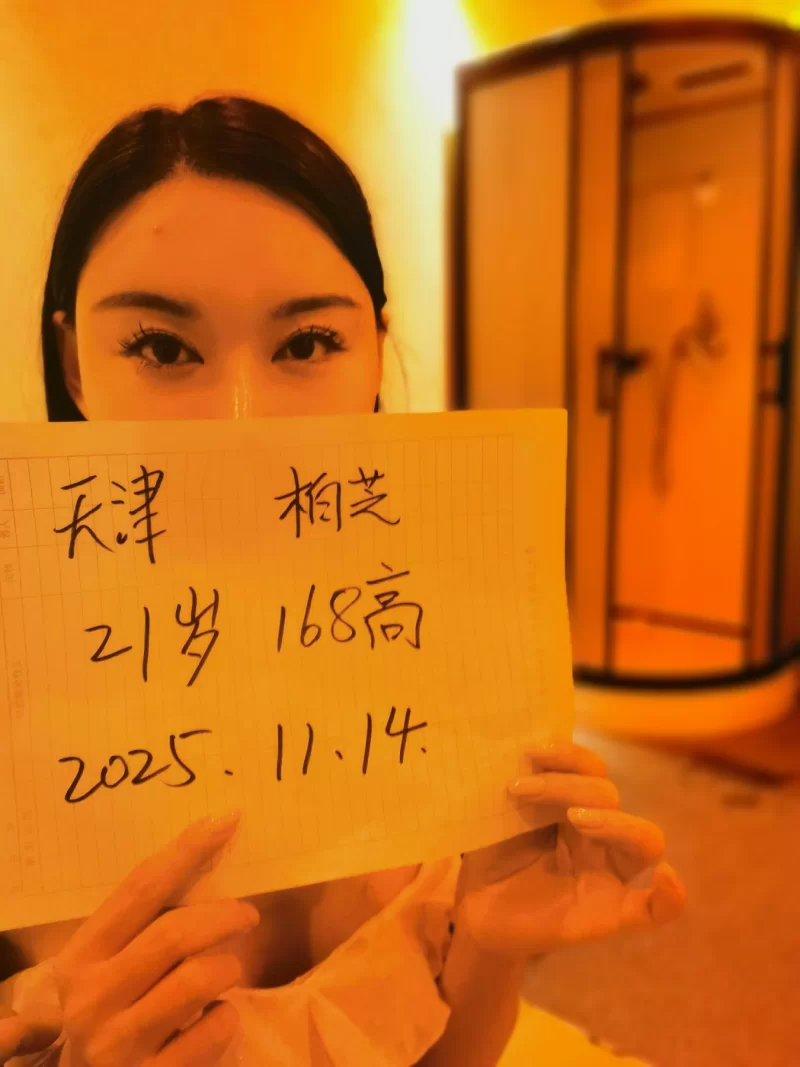 天津 柏芝
21岁 168高
2025.11.14.